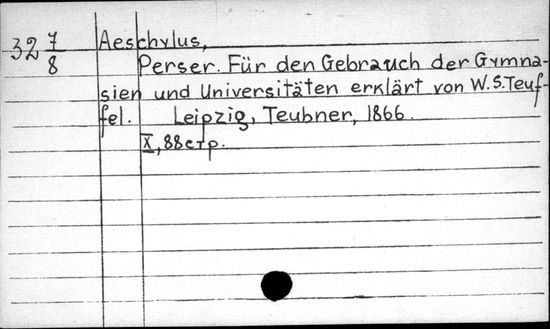 32 7/8 Aeschylus,
Perser. Für den Gebrauch der Gymna-
sien und Universitäten erklärt von W.S.Teuf-
fel. Leipzig, Teubner, 1866.
X, 88 стр.